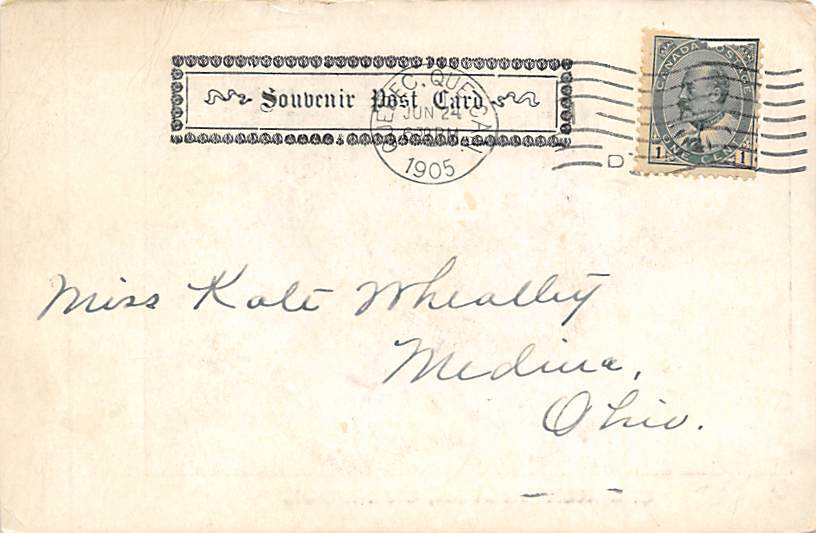 Souvenir Post Card
QUEBEC, QUE. CAN.
JUN 24
1905
D
CANADA POSTAGE
1 ONE CENT 1
Miss Kate Wheatley
Medina,
Ohio.